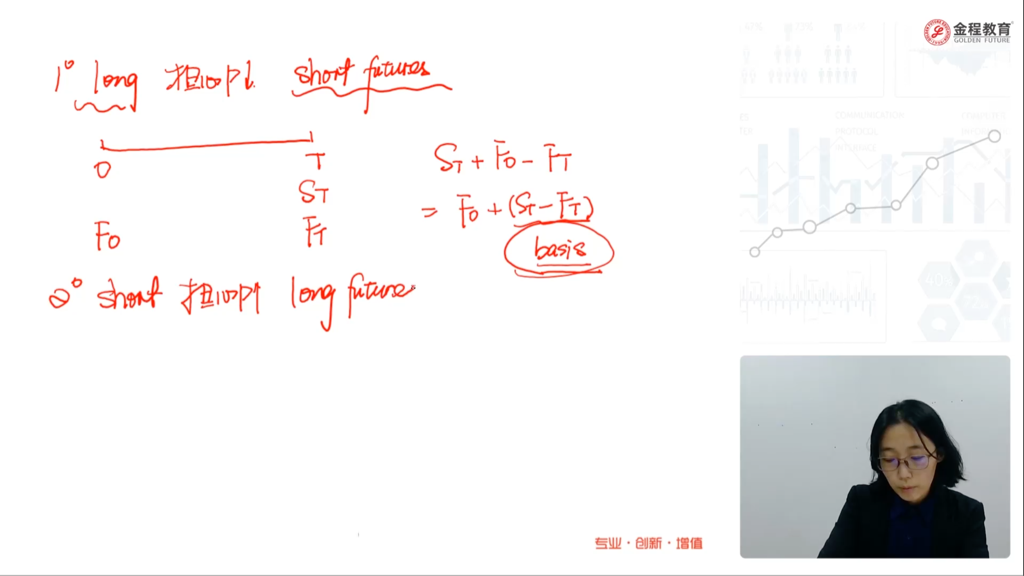 金程教育
GOLDEN FUTURE
1° long 担心P↓ short futures
0 T
S_T + F_0 - F_T
S_T
= F_0 + (S_T - F_T)
F_0 F_T
basis
2° short 担心P↑ long future
专业·创新·增值